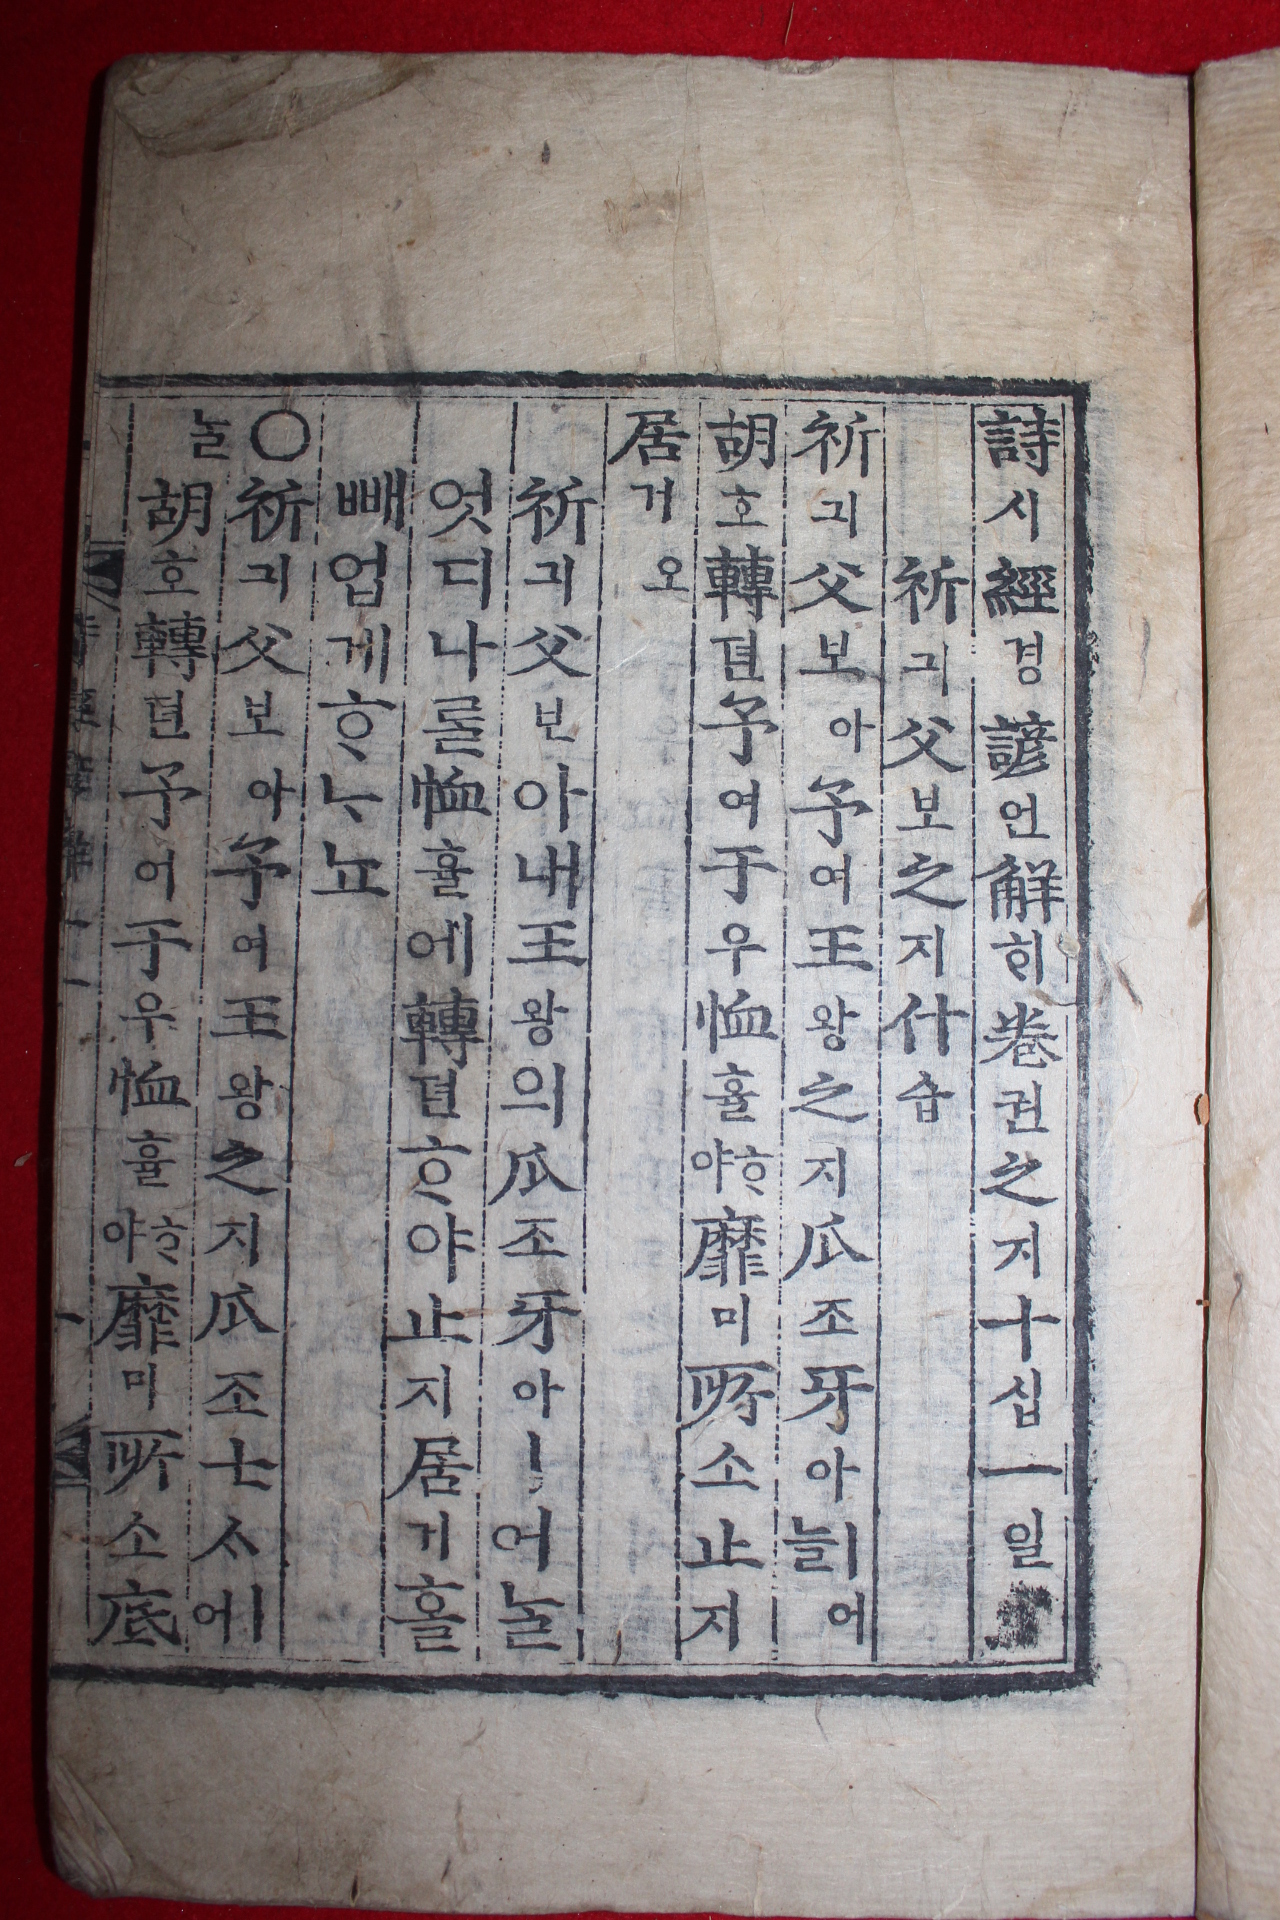 詩시經경諺언解ᄒᆡ卷권之지十십一일
祈긔父보之지什습
祈긔父보아予여王왕之지爪조牙아늘ㅣ어
胡호轉뎐予여于우恤휼ᄒᆞ야靡미所소止지
居거오
祈긔父보ㅣ아내王왕의爪조牙아ㅣ어늘
엇디나를恤휼에轉뎐ᄒᆞ야止지居거홀
빼업게ᄒᆞᄂᆞ뇨
○祈긔父보아予여王왕之지爪조士ᄉᆞㅣ어늘
胡호轉뎐予여于우恤휼ᄒᆞ야靡미所소底